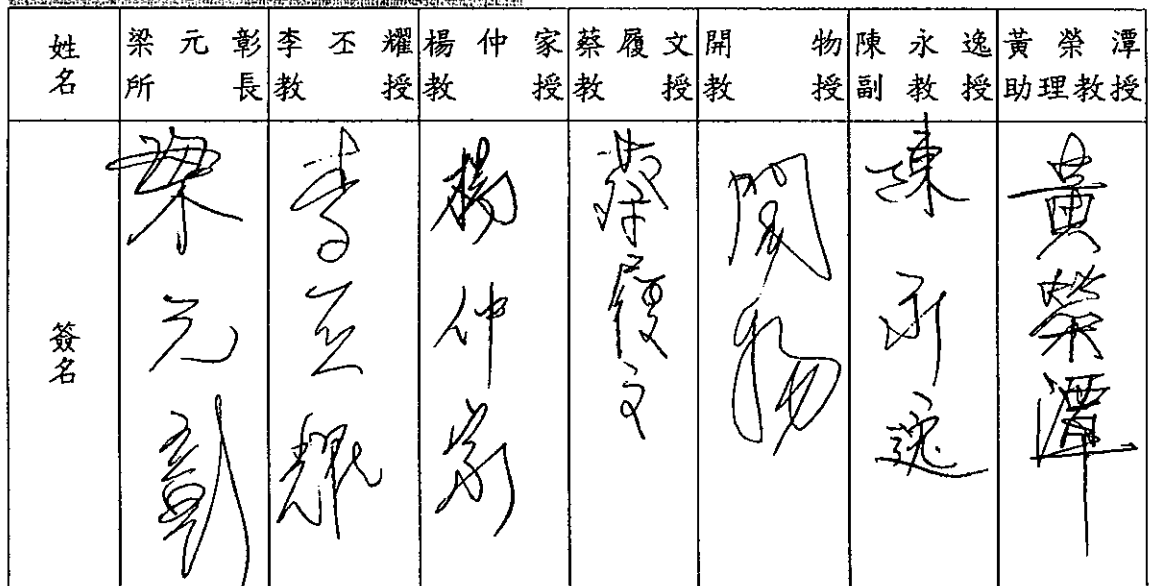 姓名 梁元彰所長 李丕耀教授 楊仲家教授 蔡履文教授 開物教授 陳永逸副教授 黃榮潭助理教授
簽名 梁元彰 李丕耀 楊仲家 蔡履文 開物 陳永逸 黃榮潭